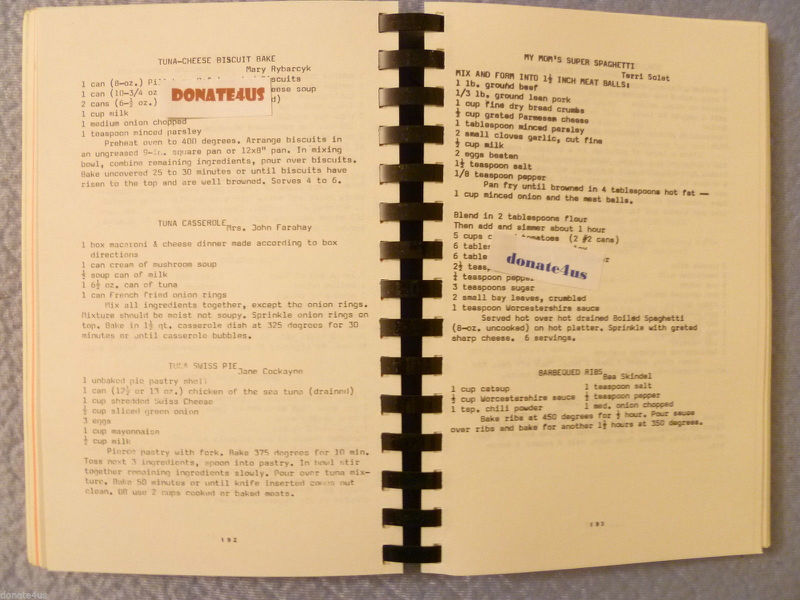 TUNA-CHEESE BISCUIT BAKE
Mary Rybarcyk
1 can (8-oz.) Biscuits
1 can (10-3/4 oz cheese soup
2 cans (6-½ oz.)
DONATE4US
1 cup milk
1 medium onion chopped
1 teaspoon minced parsley
Preheat oven to 400 degrees. Arrange biscuits in
an ungreased 9-in. square pan or 12x8" pan. In mixing
bowl, combine remaining ingredients, pour over biscuits.
Bake uncovered 25 to 30 minutes or until biscuits have
risen to the top and are well browned. Serves 4 to 6.
TUNA CASSEROLE
Mrs. John Farohay
1 box macaroni & cheese dinner made according to box
directions
1 can cream of mushroom soup
½ soup can of milk
1 6½ oz. can of tuna
1 can French fried onion rings
Mix all ingredients together, except the onion rings.
Mixture should be moist not soupy. Sprinkle onion rings on
top. Bake in 1½ qt. casserole dish at 325 degrees for 30
minutes or until casserole bubbles.
TUNA SWISS PIE
Jane Cockayne
1 unbaked pie pastry shell
1 can (12½ or 13 oz.) chicken of the sea tuna (drained)
1 cup shredded Swiss Cheese
½ cup sliced green onion
3 eggs
1 cup mayonnaise
½ cup milk
Pierce pastry with fork. Bake 375 degrees for 10 min.
Toss next 3 ingredients, spoon into pastry. In bowl stir
together remaining ingredients slowly. Pour over tuna mix-
ture. Bake 50 minutes or until knife inserted comes out
clean. OR use 2 cups cooked or baked meats.
192
MY MOM'S SUPER SPAGHETTI
Terri Solat
MIX AND FORM INTO 1½ INCH MEAT BALLS:
1 lb. ground beef
1/3 lb. ground lean pork
1 cup fine dry bread crumbs
½ cup grated Parmesan cheese
1 tablespoon minced parsley
2 small cloves garlic, cut fine
½ cup milk
2 eggs beaten
1½ teaspoon salt
1/8 teaspoon pepper
Pan fry until browned in 4 tablespoons hot fat —
1 cup minced onion and the meat balls.
Blend in 2 tablespoons flour
Then add and simmer about 1 hour
5 cups tomatoes (2 #2 cans)
6 table
6 table
2½ teas
donate4us
½ teaspoon pepper
3 teaspoons sugar
2 small bay leaves, crumbled
1 teaspoon Worcestershire sauce
Served hot over hot drained Boiled Spaghetti
(8-oz. uncooked) on hot platter. Sprinkle with grated
sharp cheese. 6 servings.
BARBEQUED RIBS
Bea Skindel
1 cup catsup 1 teaspoon salt
½ cup Worcestershire sauce ½ teaspoon pepper
1 tsp. chili powder 1 med. onion chopped
Bake ribs at 450 degrees for ½ hour. Pour sauce
over ribs and bake for another 1½ hours at 350 degrees.
193
donate4us